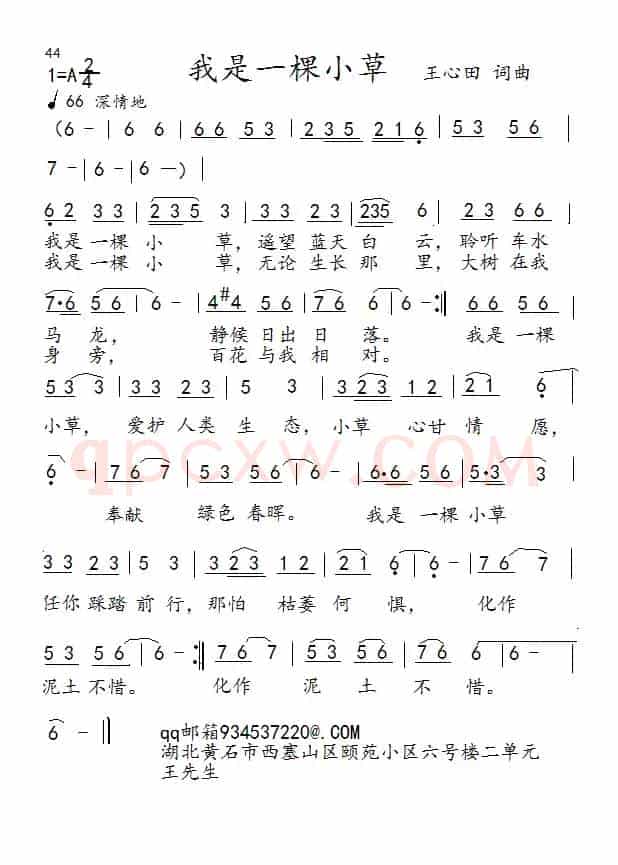 44
1=A 2/4
我是一棵小草 王心田 词曲
♩66 深情地
(6 - | 6 6 | 6 6 5 3 | 2 3 5 2 1 6 | 5 3 5 6 |
7 - | 6 - | 6 —) |
6 2 3 3 | 2 3 5 3 | 3 3 5 5 | 2 3 5 6 | 2 3 6 6 |
我是一棵 小 草，遥望 蓝天 白 云，聆听 车水
我是一棵 小 草，无论 生长 那 里，大树 在我
7·6 5 6 | 6 - | 4 #4 5 6 | 7 6 6 | 6 - :‖ 6 6 5 6 |
马 龙， 静候 日出 日 落。 我是 一棵
身 旁， 百花 与我 相 对。
5 3 3 | 2 3 2 3 | 5 3 | 3 2 3 1 2 | 2 1 6 |
小草， 爱护 人类 生 态，小草 心甘 情 愿，
6 - | 7 6 7 | 5 3 5 6 | 6 - | 6·6 5 6 | 5·3 3 |
奉献 绿色 春晖。 我是 一棵 小草
qpcxw.COM
3 3 2 2 3 | 5 3 | 3 2 3 1 2 | 2 1 6 | 6 - | 7 6 7 |
任你 踩踏 前 行，那怕 枯萎 何 惧， 化作
5 3 5 6 | 6 - :‖ 7 6 7 | 5 3 5 6 | 5 6 6 | 6 - |
泥土 不惜。 化作 泥 土 不 惜。
6 - ‖ qq邮箱934537220@.COM
湖北黄石市西塞山区颐苑小区六号楼二单元
王先生